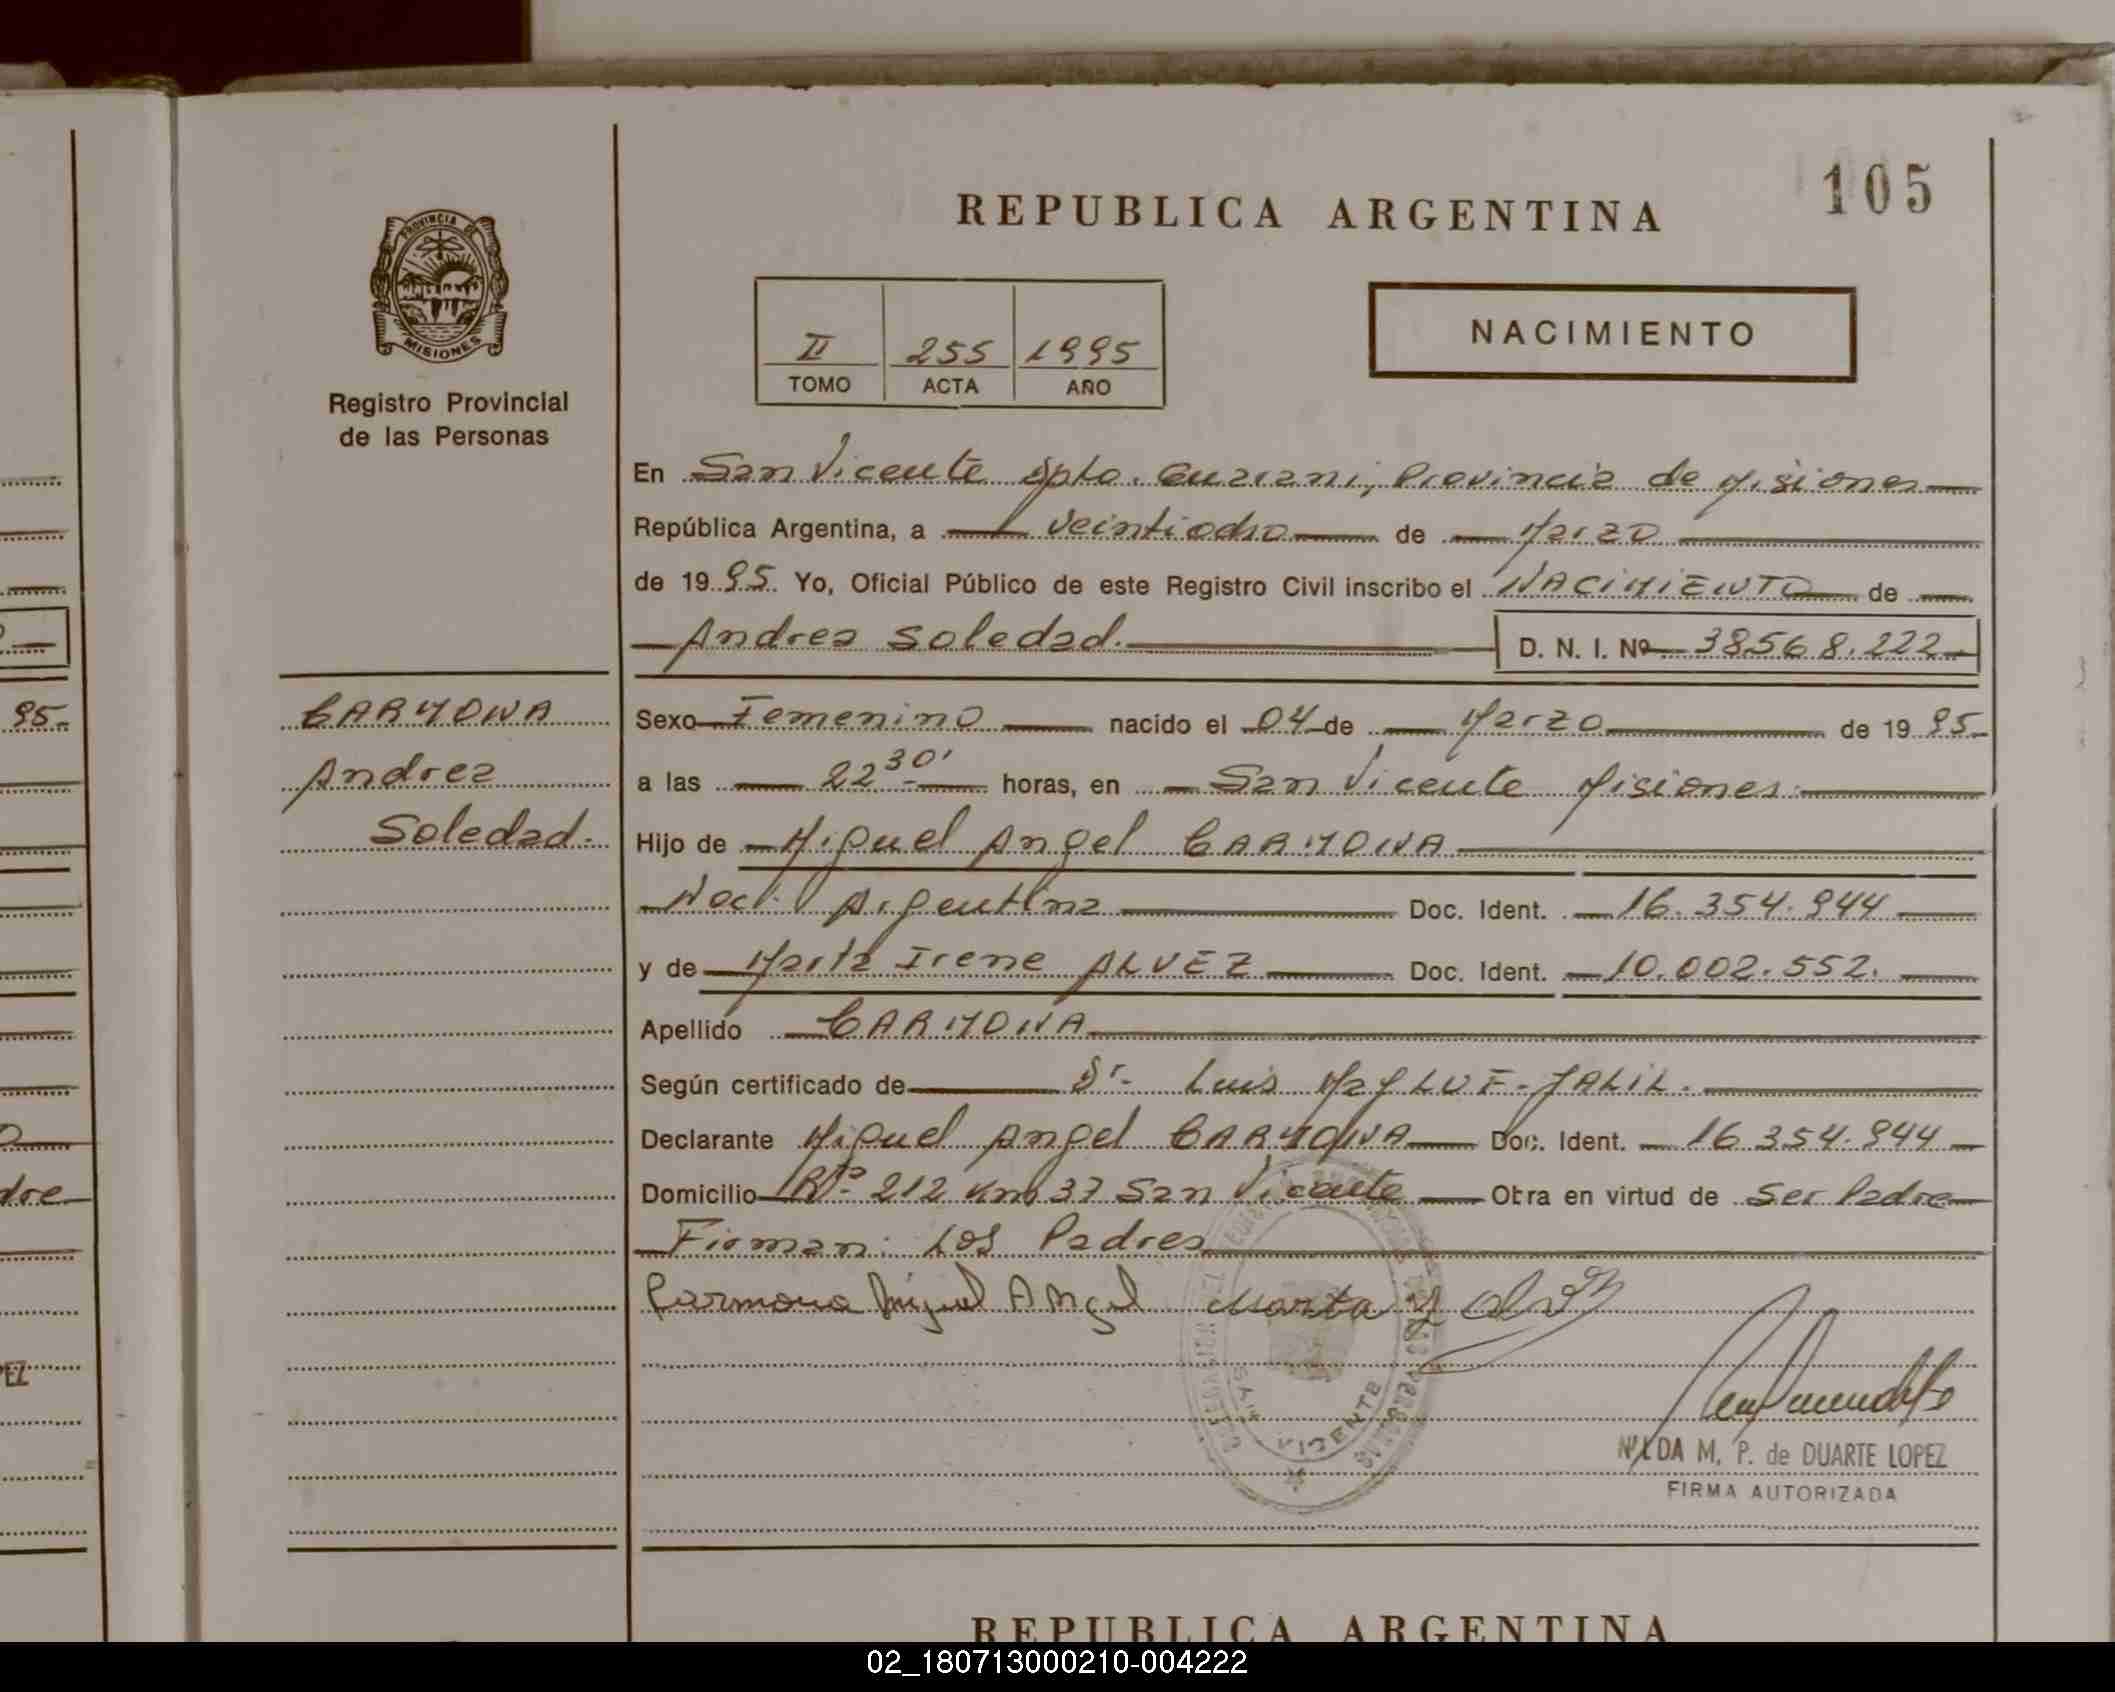 105
REPUBLICA ARGENTINA
PROVINCIA DE
MISIONES
Registro Provincial
de las Personas
NACIMIENTO
II 255 1995
TOMO ACTA AÑO
En San Vicente Dpto. Guarani, Provincia de Misiones
República Argentina, a veintiocho de Marzo
de 1995. Yo, Oficial Público de este Registro Civil inscribo el NACIMIENTO de
Andrea Soledad. D. N. I. Nº 38.568.222
CARMONA
Andrea
Soledad.
Sexo Femenino nacido el 04 de Marzo de 1995
a las 22 30' horas, en San Vicente Misiones.
Hijo de Miguel Angel CARMONA
Nac. Argentina Doc. Ident. 16.354.944
y de Marta Irene ALVEZ Doc. Ident. 10.002.552.
Apellido CARMONA
Según certificado de Dr. Luis JALIL.
Declarante Miguel Angel CARMONA Doc. Ident. 16.354.944
Domicilio Rta. 212 Km 37 San Vicente Obra en virtud de Ser Padre
Firman: Los Padres
Carmona Miguel Angel Marta
SAN VICENTE
NILDA M. P. de DUARTE LOPEZ
FIRMA AUTORIZADA
REPUBLICA ARGENTINA
95.
dre
PEZ
02_180713000210-004222